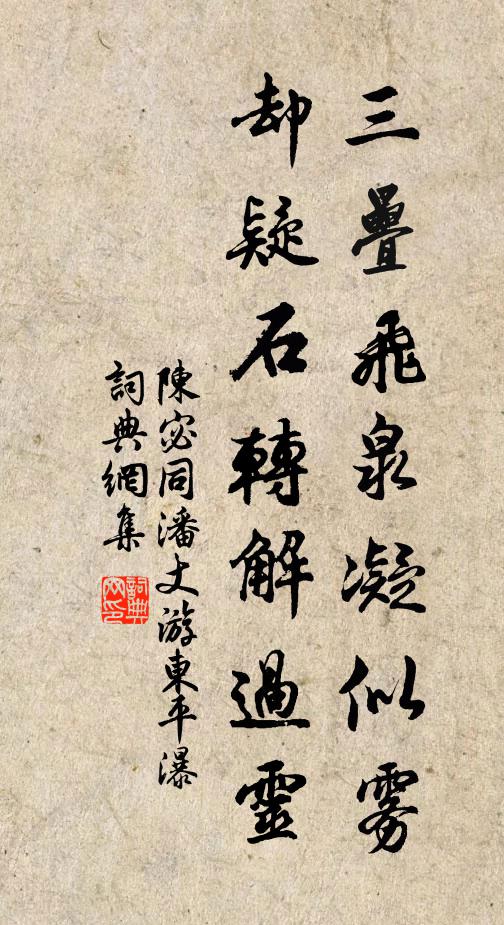 三疊飛泉凝似霧
却疑石轉解過靈
陳宓同潘丈游東平瀑
詞典網集
詞典网印